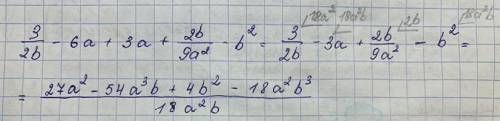 3/2b - 6a + 3a + 2b/9a² - b² = 3/2b - 3a + 2b/9a² - b² =
9a² 18a²b 2b 18a²b
= (27a² - 54a³b + 4b² - 18a²b³)/(18a²b)